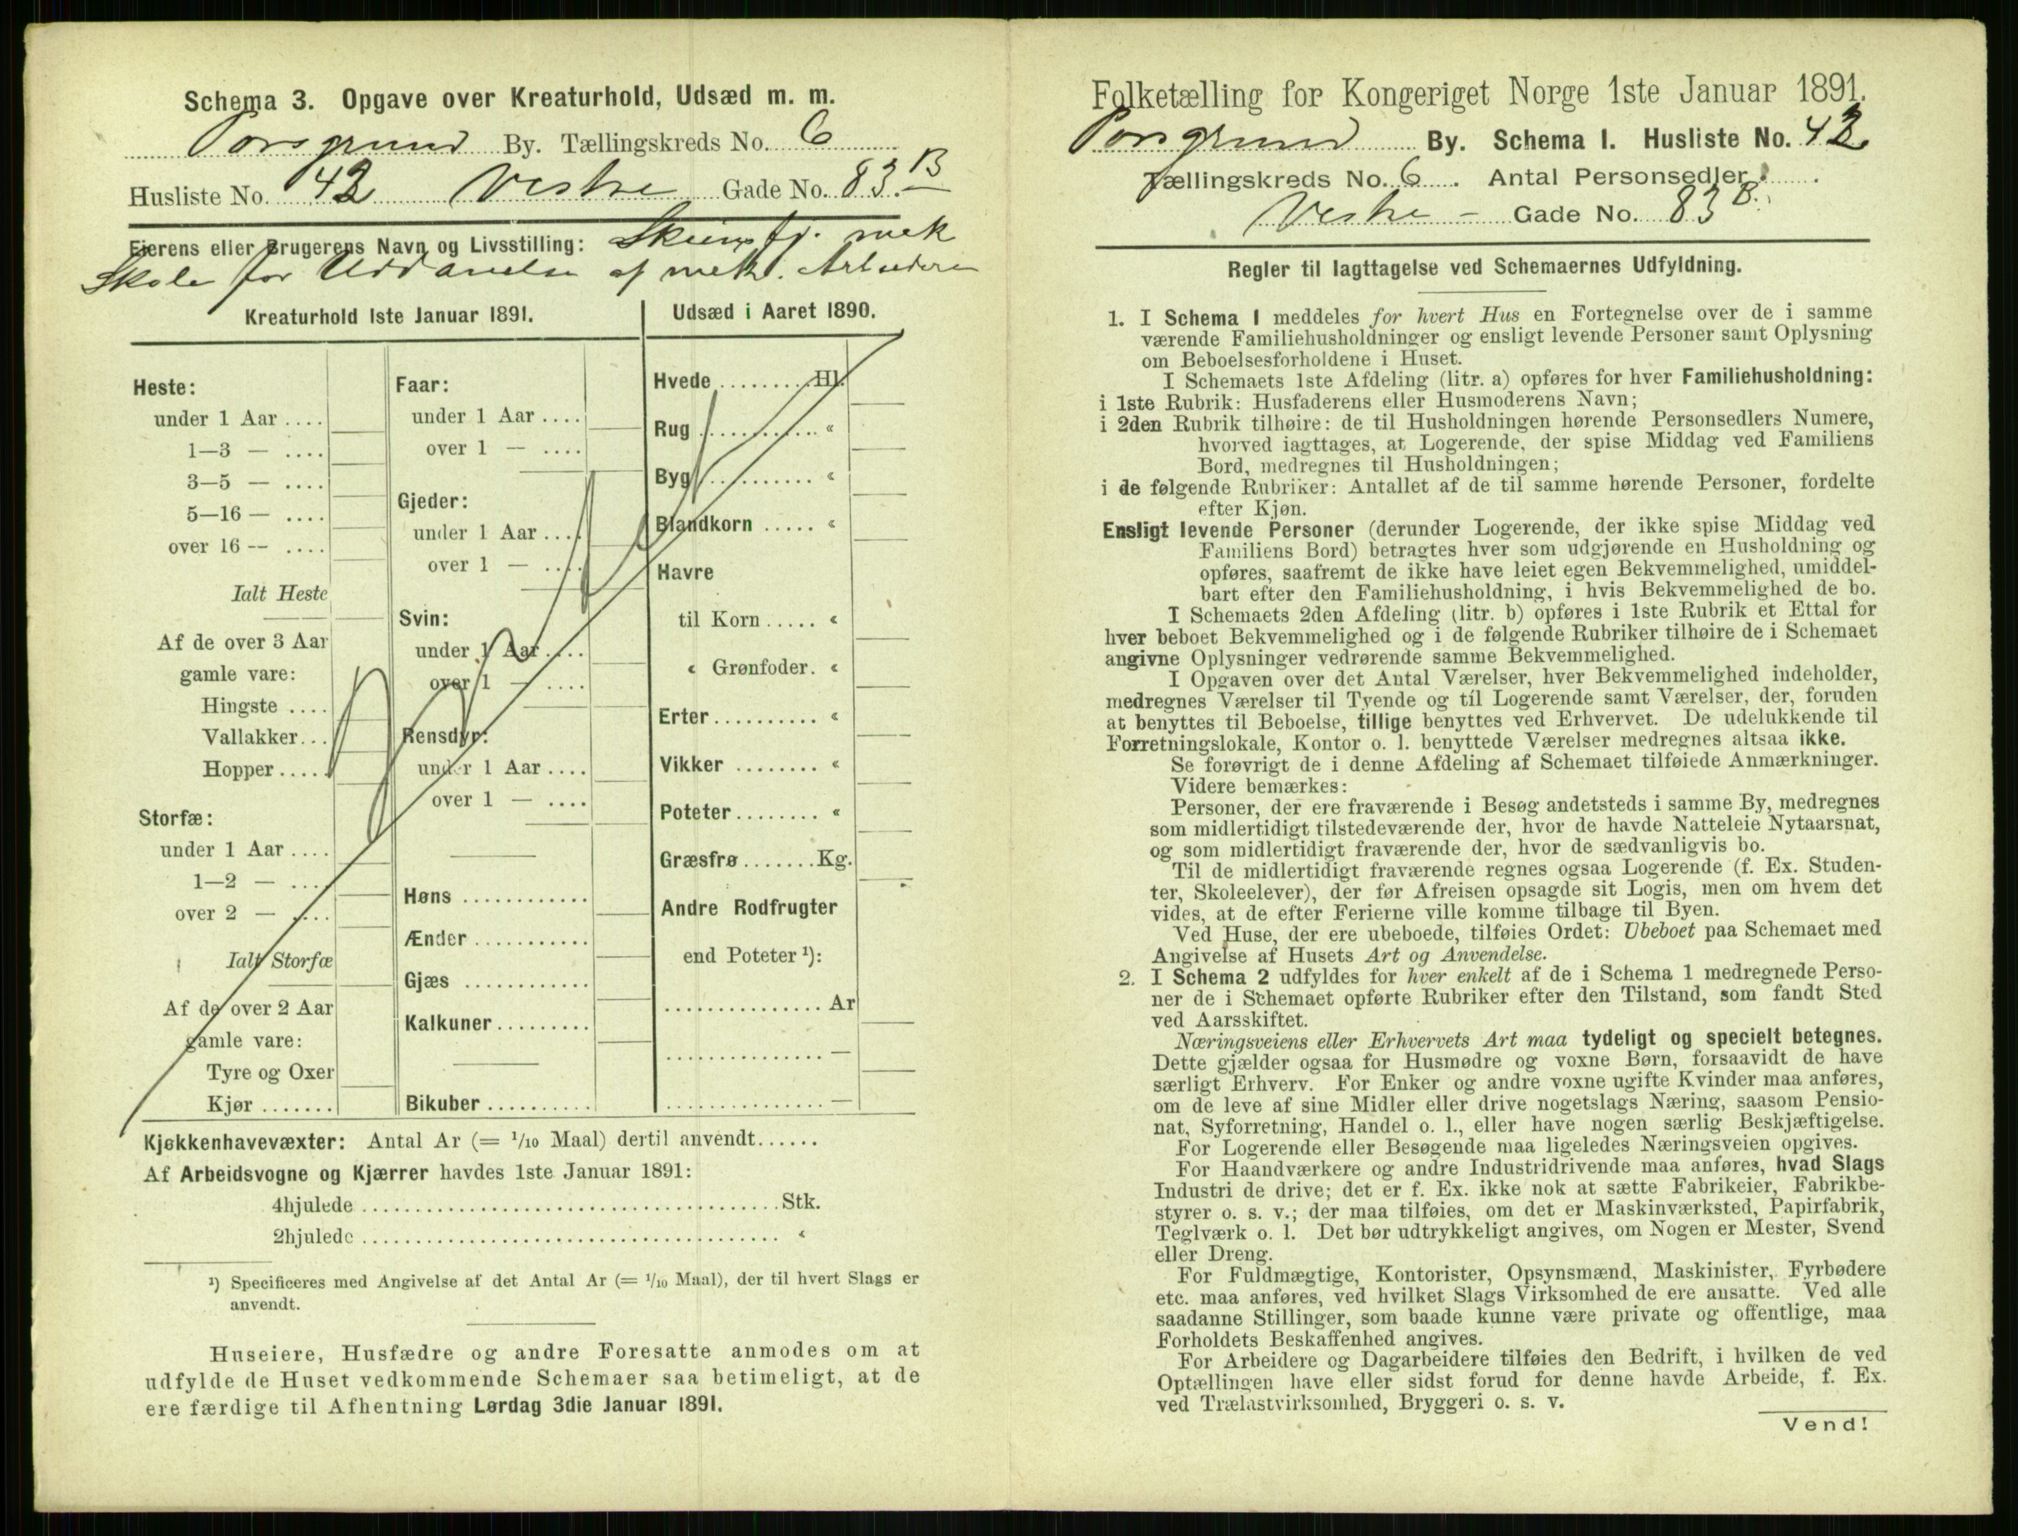 Schema 3. Opgave over Kreaturhold, Udsæd m. m.
Porsgrund By. Tællingskreds No. 6
Husliste No. 42 Vestre Gade No. 83 B
Eierens eller Brugerens Navn og Livsstilling: Skiens fj. mek
Skole for Uddanelse af mek. Arbeidere
Kreaturhold 1ste Januar 1891.
Heste:
under 1 Aar ....
1—3 — ....
3—5 — ....
5—16 — ....
over 16 — ....
Ialt Heste
Af de over 3 Aar
gamle vare:
Hingste ....
Vallakker...
Hopper.....
Storfæ:
under 1 Aar ....
1—2 — ....
over 2 — ....
Ialt Storfæ
Af de over 2 Aar
gamle vare:
Tyre og Oxer
Kjør .......
Faar:
under 1 Aar ....
over 1 — ....
Gjeder:
under 1 Aar ....
over 1 — ....
Svin:
under 1 Aar ....
over 1 — ....
Rensdyr:
under 1 Aar ....
over 1 — ....
Høns ............
Ænder ...........
Gjæs ............
Kalkuner.........
Bikuber ..........
Udsæd i Aaret 1890.
Hvede .........Hl.
Rug ............ «
Byg ............ «
Blandkorn ..... «
Havre
til Korn ..... «
« Grønfoder. «
Erter.......... «
Vikker ........ «
Poteter........ «
Græsfrø.......Kg.
Andre Rodfrugter
end Poteter ¹):
............... Ar
............... —
............... —
Kjøkkenhavevæxter: Antal Ar (= 1/10 Maal) dertil anvendt......
Af Arbeidsvogne og Kjærrer havdes 1ste Januar 1891:
4hjulede .....................................Stk.
2hjulede ..................................... «
¹) Specificeres med Angivelse af det Antal Ar (= 1/10 Maal), der til hvert Slags er
anvendt.
Huseiere, Husfædre og andre Foresatte anmodes om at
udfylde de Huset vedkommende Schemaer saa betimeligt, at de
ere færdige til Afhentning Lørdag 3die Januar 1891.
Folketælling for Kongeriget Norge 1ste Januar 1891.
Porsgrund By. Schema I. Husliste No. 42
Tællingskreds No. 6. Antal Personsedler
Vestre — Gade No. 83 B.
Regler til Iagttagelse ved Schemaernes Udfyldning.
1. I Schema 1 meddeles for hvert Hus en Fortegnelse over de i samme
værende Familiehusholdninger og ensligt levende Personer samt Oplysning
om Beboelsesforholdene i Huset.
I Schemaets 1ste Afdeling (litr. a) opføres for hver Familiehusholdning:
i 1ste Rubrik: Husfaderens eller Husmoderens Navn;
i 2den Rubrik tilhøire: de til Husholdningen hørende Personsedlers Numere,
hvorved iagttages, at Logerende, der spise Middag ved Familiens
Bord, medregnes til Husholdningen;
i de følgende Rubriker: Antallet af de til samme hørende Personer, fordelte
efter Kjøn.
Ensligt levende Personer (derunder Logerende, der ikke spise Middag ved
Familiens Bord) betragtes hver som udgjørende en Husholdning og
opføres, saafremt de ikke have leiet egen Bekvemmelighed, umiddel-
bart efter den Familiehusholdning, i hvis Bekvemmelighed de bo.
I Schemaets 2den Afdeling (litr. b) opføres i 1ste Rubrik et Ettal for
hver beboet Bekvemmelighed og i de følgende Rubriker tilhøire de i Schemaet
angivne Oplysninger vedrørende samme Bekvemmelighed.
I Opgaven over det Antal Værelser, hver Bekvemmelighed indeholder,
medregnes Værelser til Tyende og til Logerende samt Værelser, der, foruden
at benyttes til Beboelse, tillige benyttes ved Erhvervet. De udelukkende til
Forretningslokale, Kontor o. l. benyttede Værelser medregnes altsaa ikke.
Se forøvrigt de i denne Afdeling af Schemaet tilføiede Anmærkninger.
Videre bemærkes:
Personer, der ere fraværende i Besøg andetsteds i samme By, medregnes
som midlertidigt tilstedeværende der, hvor de havde Natteleie Nytaarsnat,
og som midlertidigt fraværende der, hvor de sædvanligvis bo.
Til de midlertidigt fraværende regnes ogsaa Logerende (f. Ex. Studen-
ter, Skoleelever), der før Afreisen opsagde sit Logis, men om hvem det
vides, at de efter Ferierne ville komme tilbage til Byen.
Ved Huse, der ere ubeboede, tilføies Ordet: Ubeboet paa Schemaet med
Angivelse af Husets Art og Anvendelse.
2. I Schema 2 udfyldes for hver enkelt af de i Schema 1 medregnede Perso-
ner de i Schemaet opførte Rubriker efter den Tilstand, som fandt Sted
ved Aarsskiftet.
Næringsveiens eller Erhvervets Art maa tydeligt og specielt betegnes.
Dette gjælder ogsaa for Husmødre og voxne Børn, forsaavidt de have
særligt Erhverv. For Enker og andre voxne ugifte Kvinder maa anføres,
om de leve af sine Midler eller drive nogetslags Næring, saasom Pensio-
nat, Syforretning, Handel o. l., eller have nogen særlig Beskjæftigelse.
For Logerende eller Besøgende maa ligeledes Næringsveien opgives.
For Haandværkere og andre Industridrivende maa anføres, hvad Slags
Industri de drive; det er f. Ex. ikke nok at sætte Fabrikeier, Fabrikbe-
styrer o. s. v.; der maa tilføies, om det er Maskinværksted, Papirfabrik,
Teglværk o. l. Det bør udtrykkeligt angives, om Nogen er Mester, Svend
eller Dreng.
For Fuldmægtige, Kontorister, Opsynsmænd, Maskinister, Fyrbødere
etc. maa anføres, ved hvilket Slags Virksomhed de ere ansatte. Ved alle
saadanne Stillinger, som baade kunne være private og offentlige, maa
Forholdets Beskaffenhed angives.
For Arbeidere og Dagarbeidere tilføies den Bedrift, i hvilken de ved
Optællingen have eller sidst forud for denne havde Arbeide, f. Ex.
ved Trælastvirksomhed, Bryggeri o. s. v.
Vend!